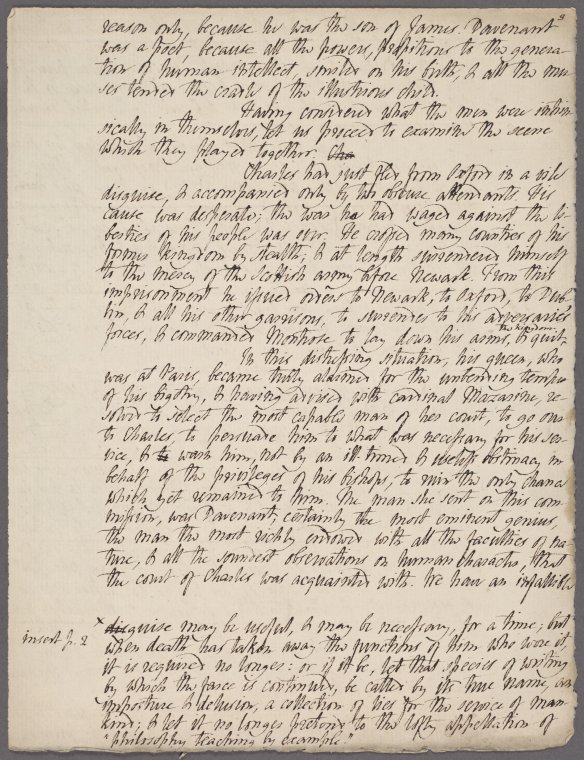 9
reason only, because he was the son of James. Davenant
was a poet, because all the powers, propitious to the genera-
tion of human intellect, smiled on his birth, & all the mu-
ses tended the cradle of the illustrious child.
Having considered what the men were intrin-
sically in themselves, let us proceed to examine the scene
which they played together. Cha
Charles had just fled from Oxford in a vile
disguise, & accompanied only by two obscure attendants. His
cause was desperate; the war he had waged against the li-
berties of his people was over. He crossed many counties of his
former kingdom by stealth; & at length surrendered himself
to the mercy of the Scottish army before Newark. From this
imprisonment he issued orders to Newark, to Oxford, to Dub-
lin, & all his other garrisons, to surrender to his adversaries
forces, & commanded Montrose to lay down his arms, & quit
the kingdom.
In this distressing situation, his queen, who
was at Paris, became truly alarmed for the unbending temper
of his bigotry, & having advised with cardinal Mazarine, re-
solved to select the most capable man of her court, to go over
to Charles, to persuade him to what was necessary for his ser-
vice, & to warn him, not by an ill-timed & useless obstinacy in
behalf of the privileges of his bishops, to ruin the only chance
which yet remained to him. The man she sent on this com-
mission, was Davenant, certainly the most eminent genius,
the man the most richly endowed with all the faculties of na-
ture, & all the soundest observations on human character, that
the court of Charles was acquainted with. We have an infallible
insert p. 2
x disguise may be useful, & may be necessary, for a time; but
when death has taken away the functions of him who wore it,
it is required no longer: or if it be, let that species of writing
by which the farce is continued, be called by its true name, an
imposture & delusion, a collection of lies for the service of man-
kind; & let it no longer pretend to the lofty appellation of
"philosophy teaching by example"